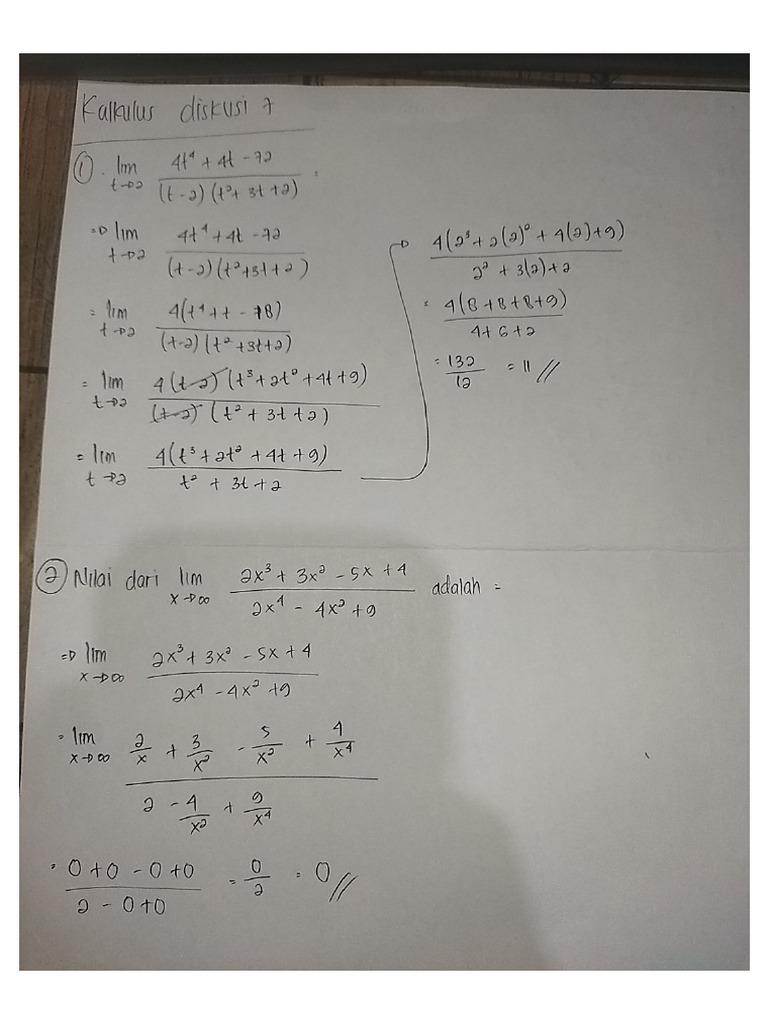 Kalkulus diskusi 7
① . lim t→2 (4t⁴ + 4t - 72) / ((t-2) (t²+ 3t +2)) =
=> lim t→2 (4t⁴ + 4t - 72) / ((t-2) (t²+3t+2))
= lim t→2 4(t⁴ + t - 18) / ((t-2) (t²+3t+2))
= lim t→2 4 (t-2) (t³+2t²+4t+9) / ((t-2) (t² + 3t +2))
= lim t→2 4(t³ + 2t² + 4t + 9) / (t² + 3t + 2)
→ 4(2³ + 2(2)² + 4(2) + 9) / (2² + 3(2) + 2)
= 4(8 + 8 + 8 + 9) / (4 + 6 + 2)
= 132 / 12 = 11 //
② Nilai dari lim x→∞ (2x³ + 3x² - 5x + 4) / (2x⁴ - 4x² + 9) adalah =
=> lim x→∞ (2x³ + 3x² - 5x + 4) / (2x⁴ - 4x² + 9)
= lim x→∞ (2/x + 3/x² - 5/x² + 4/x⁴) / (2 - 4/x² + 9/x⁴)
= (0 + 0 - 0 + 0) / (2 - 0 + 0) = 0/2 = 0 //